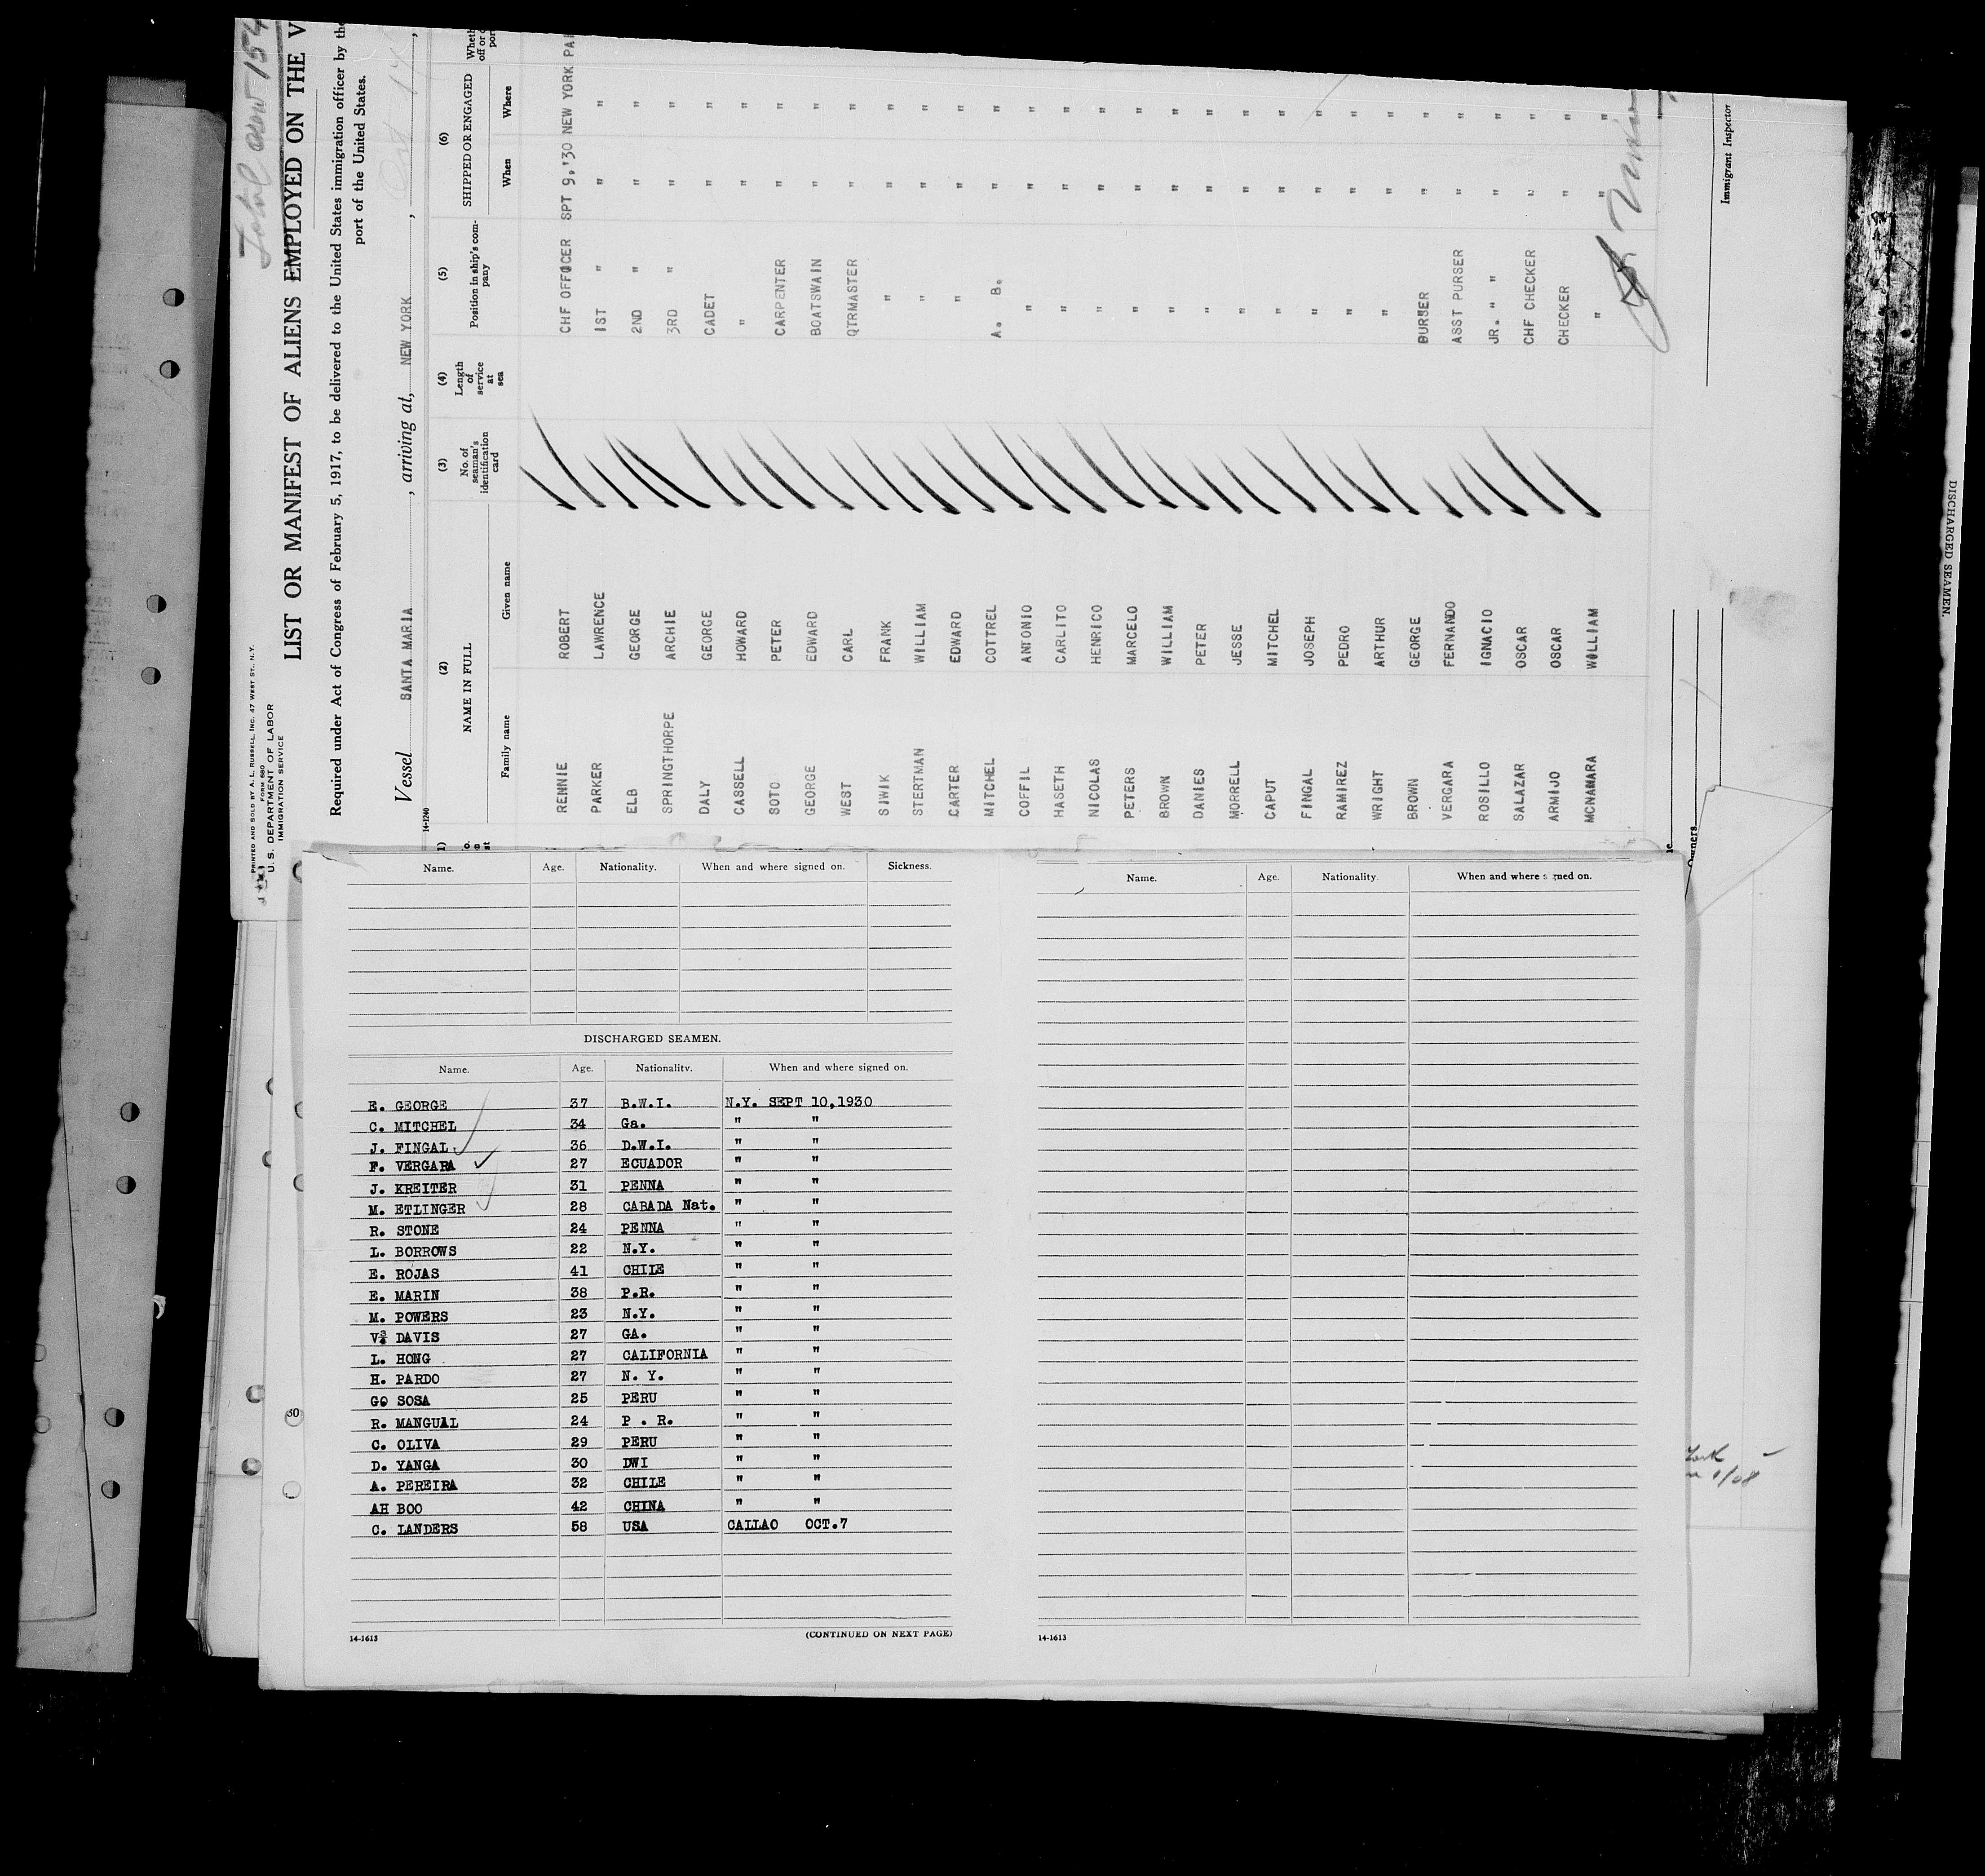 Total crew 154
PRINTED AND SOLD BY A. L. RUSSELL, INC. 47 WEST ST., N.Y.
FORM 680
U. S. DEPARTMENT OF LABOR
IMMIGRATION SERVICE
LIST OR MANIFEST OF ALIENS EMPLOYED ON THE V
Required under Act of Congress of February 5, 1917, to be delivered to the United States immigration officer by the
port of the United States.
Vessel SANTA MARIA, arriving at, NEW YORK,
14-1240
(2) NAME IN FULL (3) No. of seaman's identification card (4) Length of service at sea (5) Position in ship's company (6) SHIPPED OR ENGAGED
Family name Given name When Where
RENNIE ROBERT CHF OFFICER SPT 9,'30 NEW YORK PAI
PARKER LAWRENCE 1ST " " "
ELB GEORGE 2ND " " "
SPRINGTHORPE ARCHIE 3RD " " "
DALY GEORGE CADET " "
CASSELL HOWARD " " "
SOTO PETER CARPENTER " "
GEORGE EDWARD BOATSWAIN " "
WEST CARL QTRMASTER " "
SIWIK FRANK " " "
STERTMAN WILLIAM " " "
CARTER EDWARD " " "
MITCHEL COTTREL A. B. " "
COFFIL ANTONIO " " "
HASETH CARLITO " " "
NICOLAS HENRICO " " "
PETERS MARCELO " " "
BROWN WILLIAM " " "
DANIES PETER " " "
MORRELL JESSE " " "
CAPUT MITCHEL " " "
FINGAL JOSEPH " " "
RAMIREZ PEDRO " " "
WRIGHT ARTHUR " " "
BROWN GEORGE PURSER " "
VERGARA FERNANDO ASST PURSER " "
ROSILLO IGNACIO JR. " " " "
SALAZAR OSCAR CHF CHECKER " "
ARMIJO OSCAR CHECKER " "
MCNAMARA WILLIAM " " "
Immigrant Inspector
Name. Age. Nationality. When and where signed on. Sickness.
DISCHARGED SEAMEN.
Name. Age. Nationality. When and where signed on.
E. GEORGE 37 B.W.I. N.Y. SEPT 10,1930
C. MITCHEL 34 Ga. " "
J. FINGAL 36 D.W.I. " "
F. VERGARA 27 ECUADOR " "
J. KREITER 31 PENNA " "
M. ETLINGER 28 CABADA Nat. " "
R. STONE 24 PENNA " "
L. BORROWS 22 N.Y. " "
E. ROJAS 41 CHILE " "
E. MARIN 38 P.R. " "
M. POWERS 23 N.Y. " "
V. DAVIS 27 GA. " "
L. HONG 27 CALIFORNIA " "
H. PARDO 27 N. Y. " "
G. SOSA 25 PERU " "
R. MANGUAL 24 P . R. " "
C. OLIVA 29 PERU " "
D. YANGA 30 DWI " "
A. PEREIRA 32 CHILE " "
AH BOO 42 CHINA " "
C. LANDERS 58 USA CALLAO OCT.7
14-1613 (CONTINUED ON NEXT PAGE)
Name. Age. Nationality. When and where signed on.
14-1613
DISCHARGED SEAMEN.